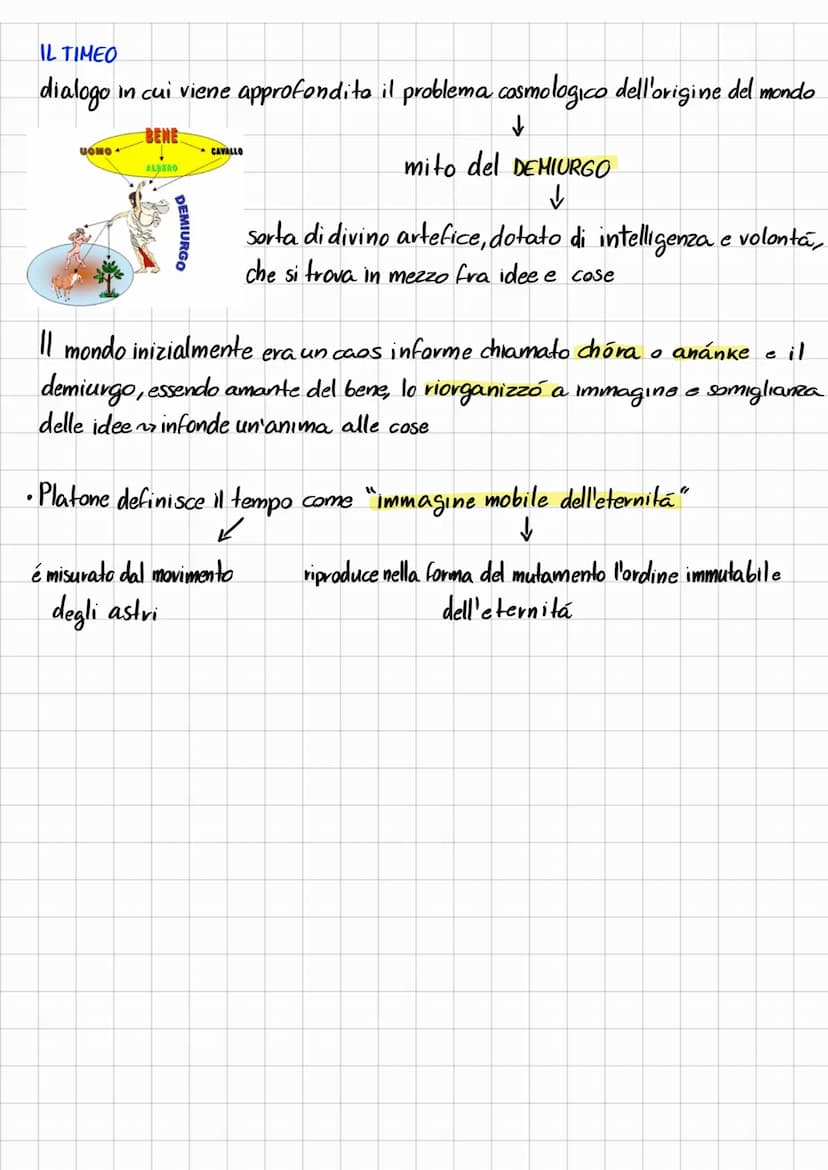 IL TIMEO
dialogo in cui viene approfondito il problema cosmologico dell'origine del mondo
↓
BENE
UOMO
CAVALLO
ALBERO
DEMIURGO
mito del DEMIURGO
↓
sorta di divino artefice, dotato di intelligenza e volontá,
che si trova in mezzo fra idee e cose
Il mondo inizialmente era un caos informe chiamato chóra o anánke e il
demiurgo, essendo amante del bene, lo riorganizzó a immagine e somiglianza
delle idee ~> infonde un'anima alle cose
• Platone definisce il tempo come "immagine mobile dell'eternitá"
↙ ↓
é misurato dal movimento riproduce nella forma del mutamento l'ordine immutabile
degli astri dell'eternitá